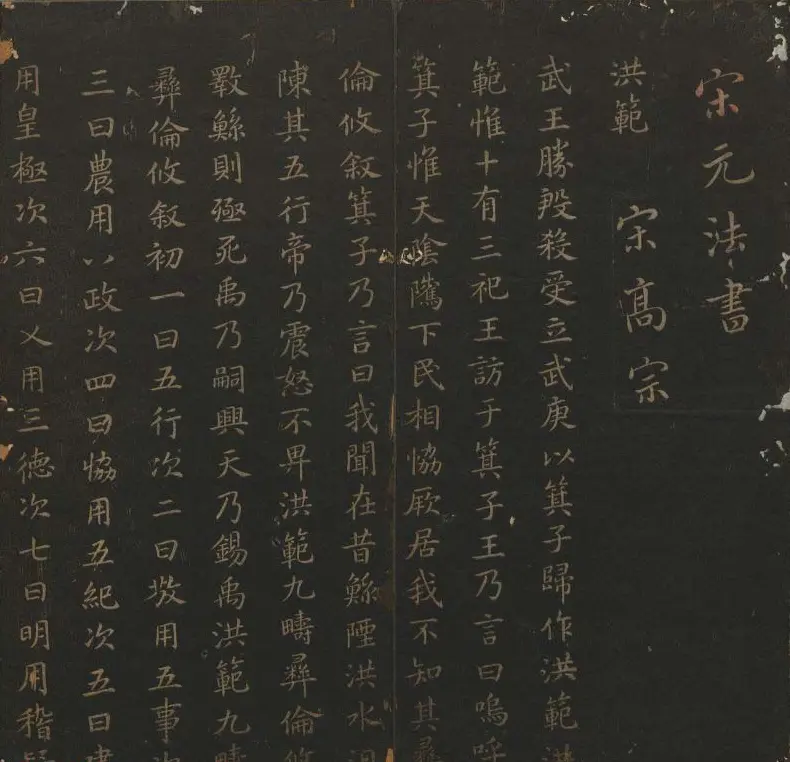 宋元法書
洪範
宋高宗
武王勝殷殺受立武庚以箕子歸作洪範洪
範惟十有三祀王訪于箕子王乃言曰嗚呼
箕子惟天陰隲下民相協厥居我不知其彝
倫攸敘箕子乃言曰我聞在昔鯀陻洪水汩
陳其五行帝乃震怒不畀洪範九疇彝倫攸
斁鯀則殛死禹乃嗣興天乃錫禹洪範九疇
彝倫攸敘初一曰五行次二曰敬用五事次
三曰農用八政次四曰協用五紀次五曰建
用皇極次六曰乂用三德次七曰明用稽疑